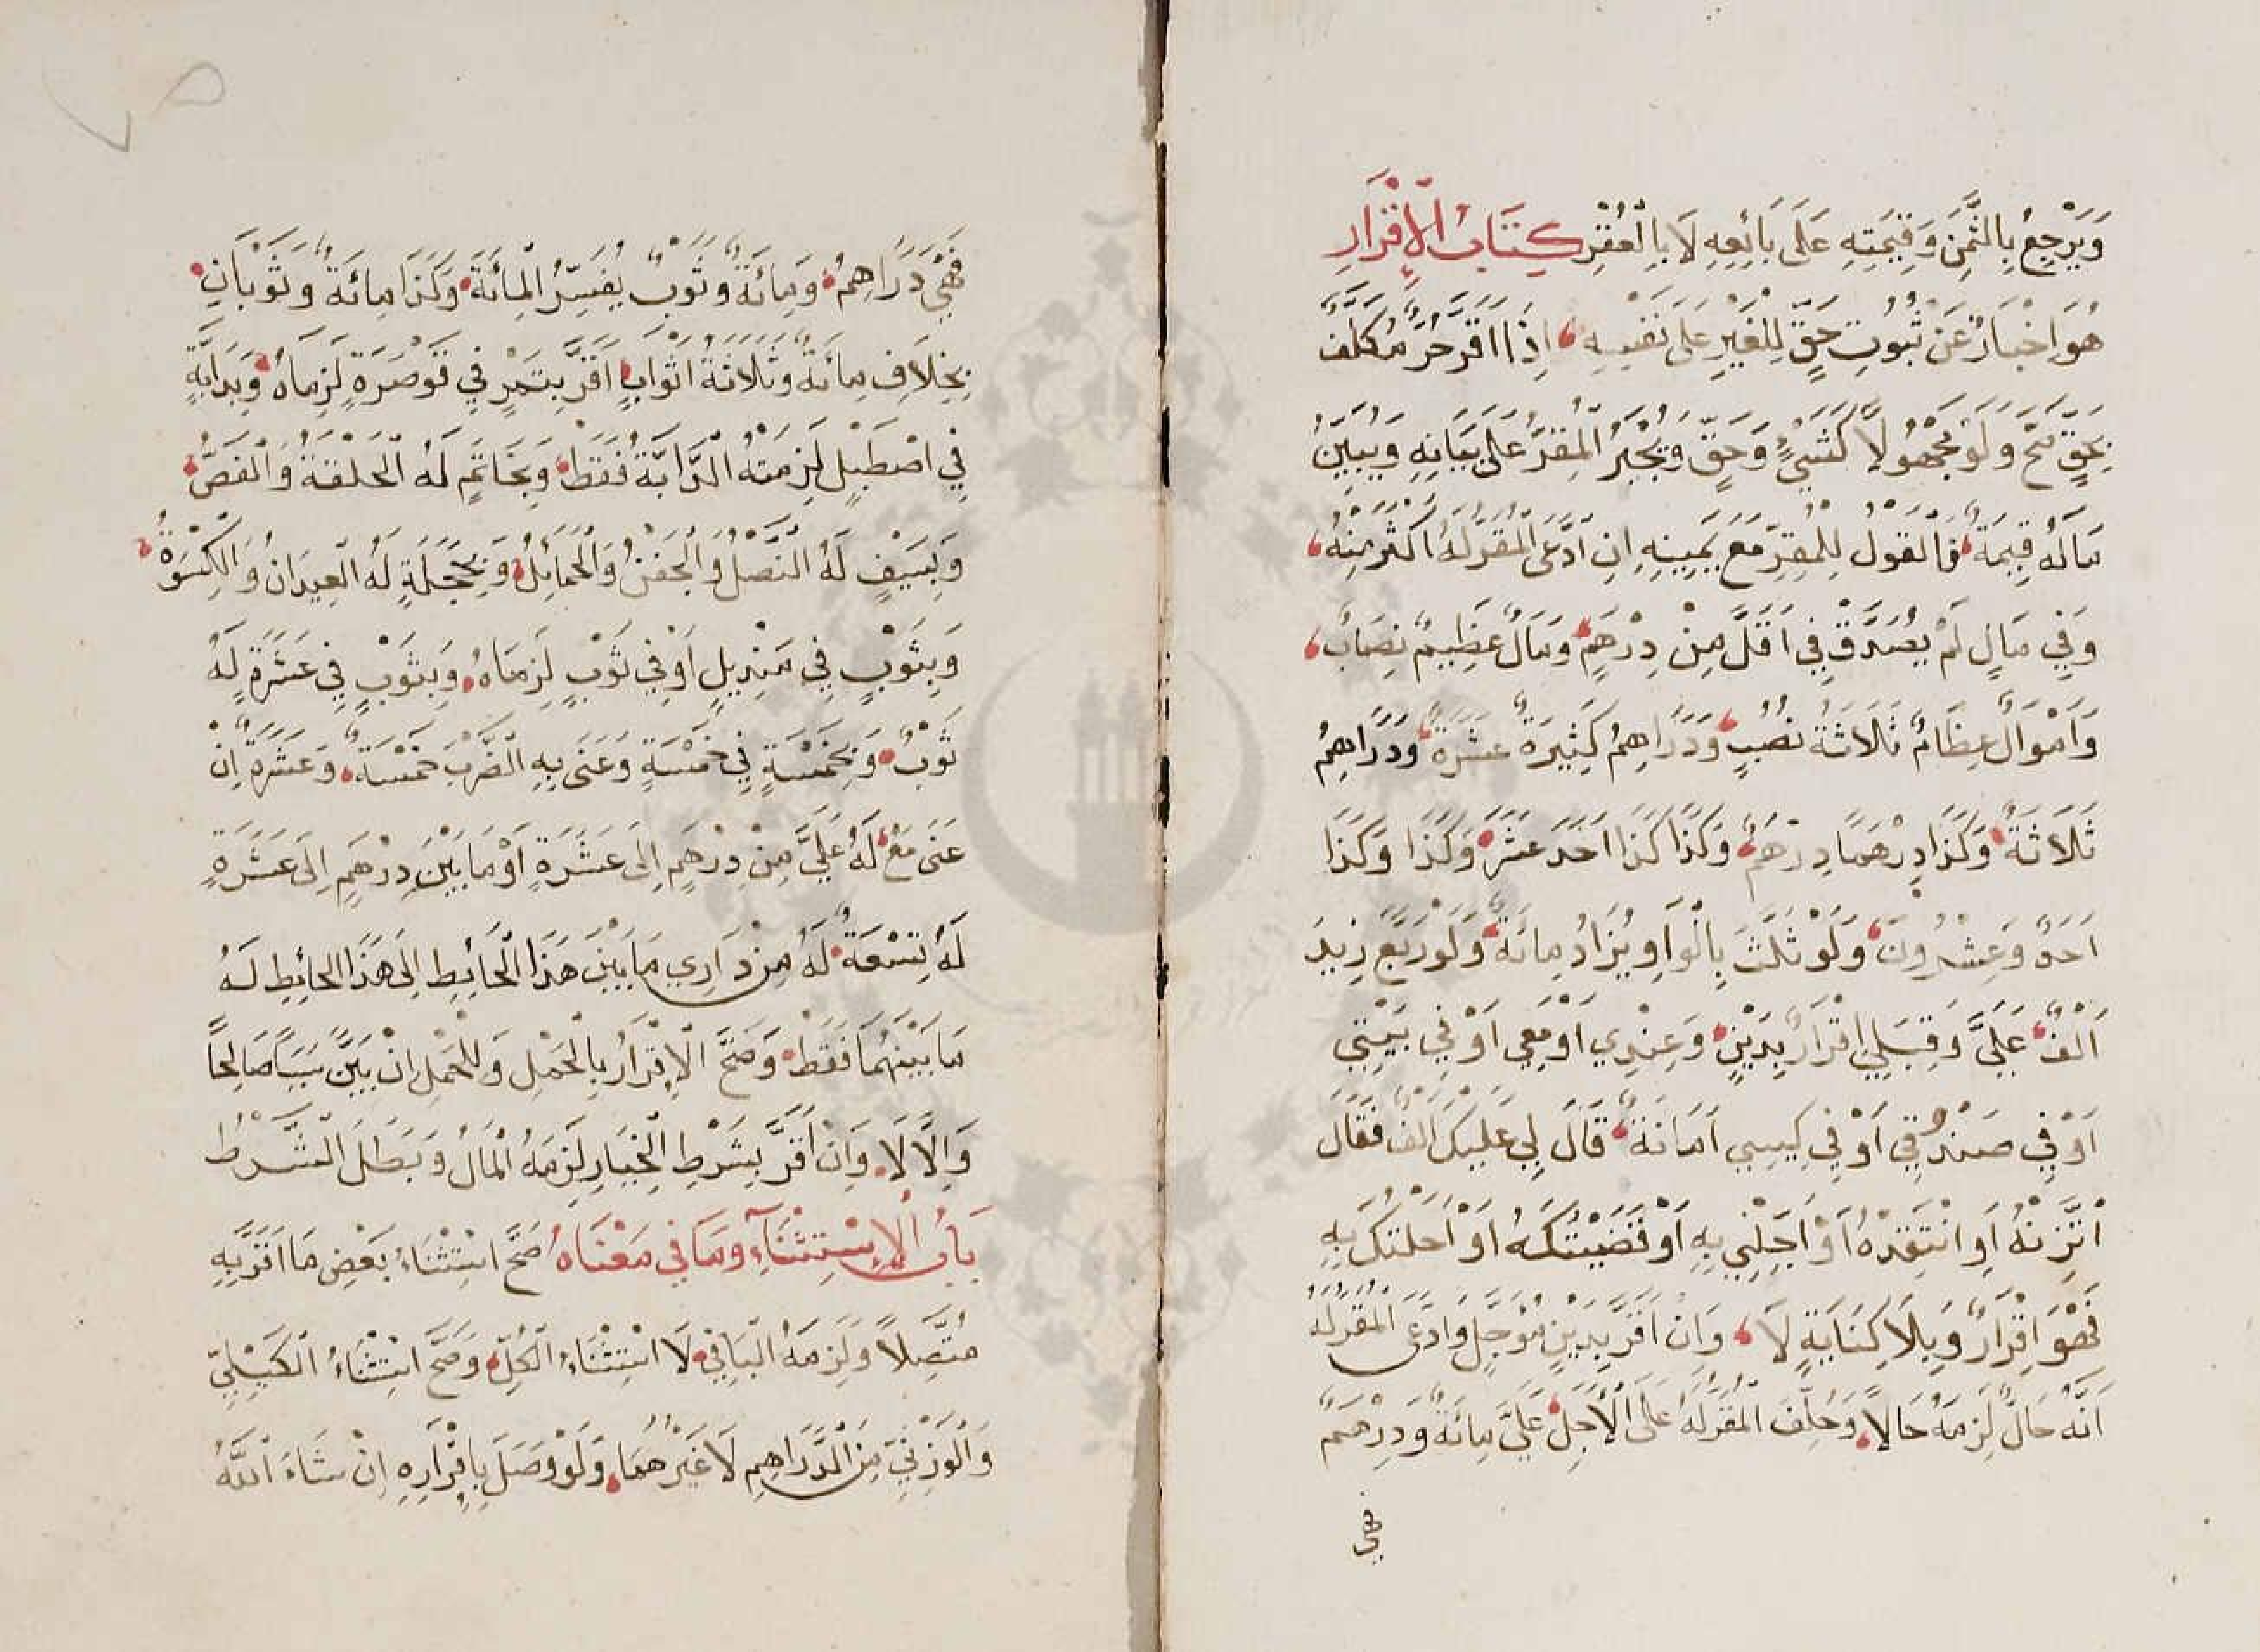 وَيَرْجِعُ بِالثَّمَنِ وَقِيمَتِهِ عَلَى بَائِعِهِ لَا بِالْعُقْرِ كِتَابُ الْإِقْرَارِ
هُوَ اِخْبَارٌ عَنْ ثُبُوتِ حَقٍّ لِلْغَيْرِ عَلَى نَفْسِهِ اِذَا اَقَرَّ حُرٌّ مُكَلَّفٌ
بِحَقٍّ صَحَّ وَلَوْ مَجْهُولًا كَشَيْءٍ وَحَقٍّ وَيُجْبَرُ الْمُقِرُّ عَلَى بَيَانِهِ وَيُبَيِّنُ
مَا لَهُ قِيمَةٌ فَالْقَوْلُ لِلْمُقِرِّ مَعَ يَمِينِهِ اِنِ ادَّعَى الْمُقَرُّ لَهُ اَكْثَرَ مِنْهُ
وَفِي مَالٍ لَمْ يُصَدَّقْ فِي اَقَلَّ مِنْ دِرْهَمٍ وَمَالٌ عَظِيمٌ نِصَابٌ
وَاَمْوَالٌ عِظَامٌ ثَلَاثَةُ نُصُبٍ وَدَرَاهِمُ كَثِيرَةٌ عَشَرَةٌ وَدَرَاهِمُ
ثَلَاثَةٌ وَكَذَا دِرْهَمًا دِرْهَمٌ وَكَذَا كَذَا اَحَدَ عَشَرَ وَكَذَا وَكَذَا
اَحَدٌ وَعِشْرُونَ وَلَوْ ثَلَّثَ بِالْوَاوِ يُزَادُ مِائَةٌ وَلَوْ رَبَّعَ زِيدَ
اَلْفٌ عَلَيَّ وَقِبَلِي اِقْرَارٌ بِدَيْنٍ وَعِنْدِي اَوْ مَعِي اَوْ فِي بَيْتِي
اَوْ فِي صَنْدُوقِي اَوْ فِي كِيسِي اَمَانَةٌ قَالَ لِي عَلَيْكَ اَلْفٌ فَقَالَ
اتَّزِنْهُ اَوِ انْتَقِدْهُ اَوْ اَجِّلْنِي بِهِ اَوْ قَضَيْتُكَهُ اَوْ اَحَلْتُكَ بِهِ
فَهُوَ اِقْرَارٌ وَبِلَا كِنَايَةٍ لَا وَاِنْ اَقَرَّ بِدَيْنٍ مُؤَجَّلٍ وَادَّعَى الْمُقَرُّ لَهُ
اَنَّهُ حَالٌّ لَزِمَهُ حَالًا وَحُلِّفَ الْمُقَرُّ لَهُ عَلَى الْاَجَلِ عَلَيَّ مِائَةٌ وَدِرْهَمٌ
فهي
فَهِيَ دَرَاهِمُ وَمِائَةٌ وَثَوْبٌ يُفَسِّرُ الْمِائَةَ وَكَذَا مِائَةٌ وَثَوْبَانِ
بِخِلَافِ مِائَةٌ وَثَلَاثَةُ اَثْوَابٍ اَقَرَّ بِتَمْرٍ فِي قَوْصَرَةٍ لَزِمَاهُ وَبِدَابَّةٍ
فِي اصْطَبْلٍ لَزِمَتْهُ الدَّابَّةُ فَقَطْ وَبِخَاتَمٍ لَهُ الْحَلْقَةُ وَالْفَصُّ
وَبِسَيْفٍ لَهُ النَّصْلُ وَالْجَفْنُ وَالْحَمَائِلُ وَبِحَجَلَةٍ لَهُ الْعِيدَانُ وَالْكِسْوَةُ
وَبِثَوْبٍ فِي مَنْدِيلٍ اَوْ فِي ثَوْبٍ لَزِمَاهُ وَبِثَوْبٍ فِي عَشَرَةٍ لَهُ
ثَوْبٌ وَبِخَمْسَةٍ فِي خَمْسَةٍ وَعَنَى بِهِ الضَّرْبَ خَمْسَةٌ وَعَشَرَةٌ اِنْ
عَنَى مَعْ لَهُ عَلَيَّ مِنْ دِرْهَمٍ اِلَى عَشَرَةٍ اَوْ مَا بَيْنَ دِرْهَمٍ اِلَى عَشَرَةٍ
لَهُ تِسْعَةٌ لَهُ مِنْ دَارِي مَا بَيْنَ هَذَا الْحَائِطِ اِلَى هَذَا الْحَائِطِ لَهُ
مَا بَيْنَهُمَا فَقَطْ وَصَحَّ الْاِقْرَارُ بِالْحَمْلِ وَلِلْحَمْلِ اِنْ بَيَّنَ سَبَبًا صَالِحًا
وَاِلَّا لَا وَاِنْ اَقَرَّ بِشَرْطِ الْخِيَارِ لَزِمَهُ الْمَالُ وَبَطَلَ الشَّرْطُ
بَابُ الْاِسْتِثْنَآءِ وَمَا فِي مَعْنَاهُ صَحَّ اسْتِثْنَاءُ بَعْضِ مَا اَقَرَّ بِهِ
مُتَّصِلًا وَلَزِمَهُ الْبَاقِي لَا اسْتِثْنَاءُ الْكُلِّ وَصَحَّ اسْتِثْنَاءُ الْكَيْلِيِّ
وَالْوَزْنِيِّ مِنَ الدَّرَاهِمِ لَا غَيْرُهُمَا وَلَوْ وَصَلَ بِاِقْرَارِهِ اِنْ شَاءَ اللَّهُ